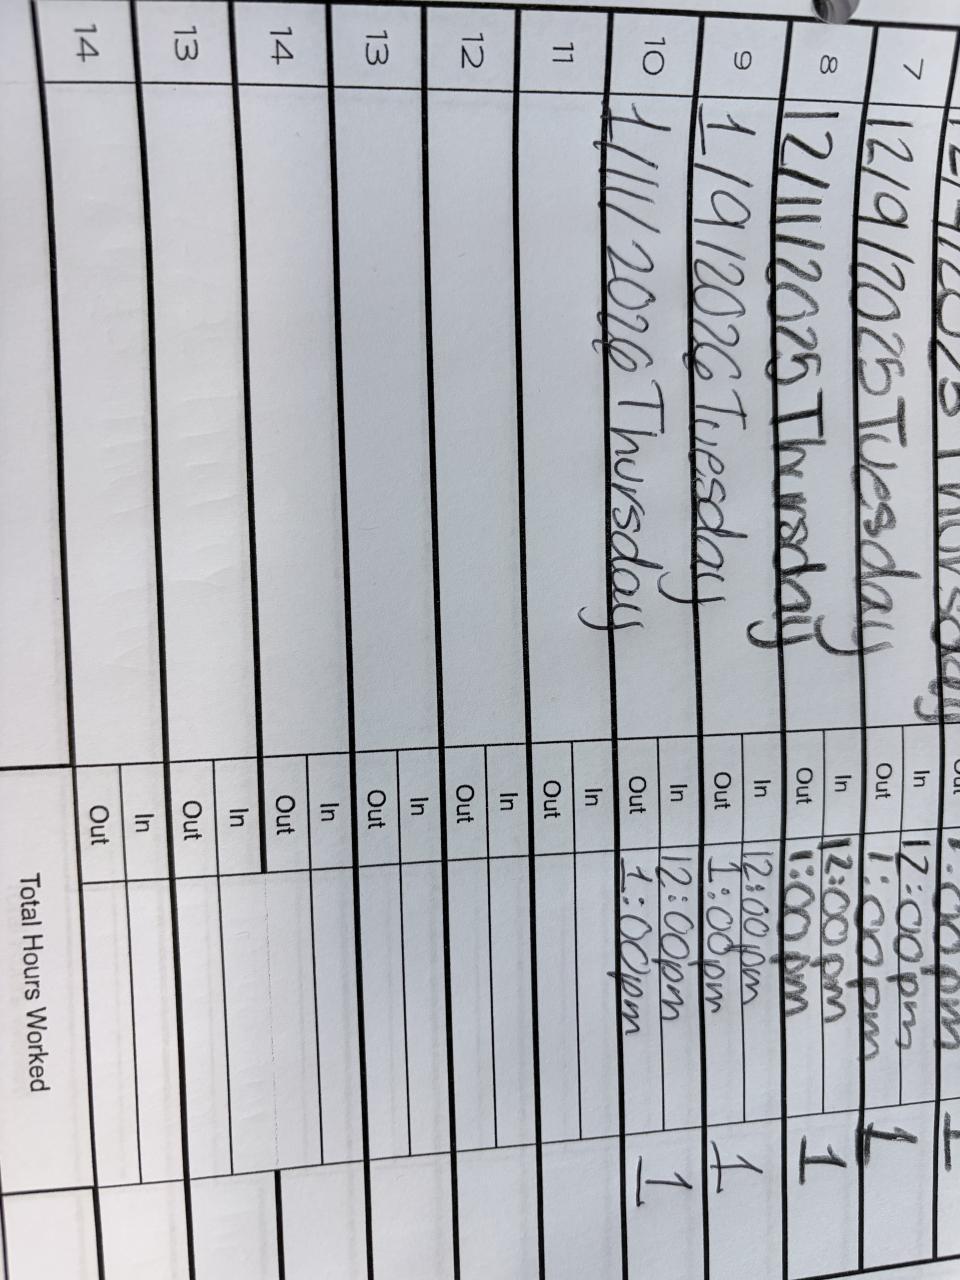 12/4/2025 Thursday
Out 1:00pm 1
7 12/9/2025 Tuesday In 12:00pm
Out 1:00pm 1
8 12/11/2025 Thursday In 12:00pm
Out 1:00pm 1
9 1/9/2026 Tuesday In 12:00pm
Out 1:00pm 1
10 1/11/2026 Thursday In 12:00pm
Out 1:00pm 1
11 In
Out
12 In
Out
13 In
Out
14 In
Out
13 In
Out
14 In
Out
Total Hours Worked